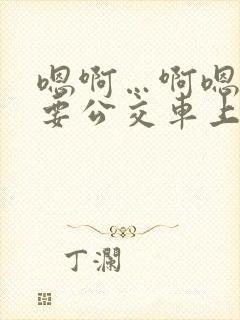 嗯啊…啊嗯
要公交车上
丁澜